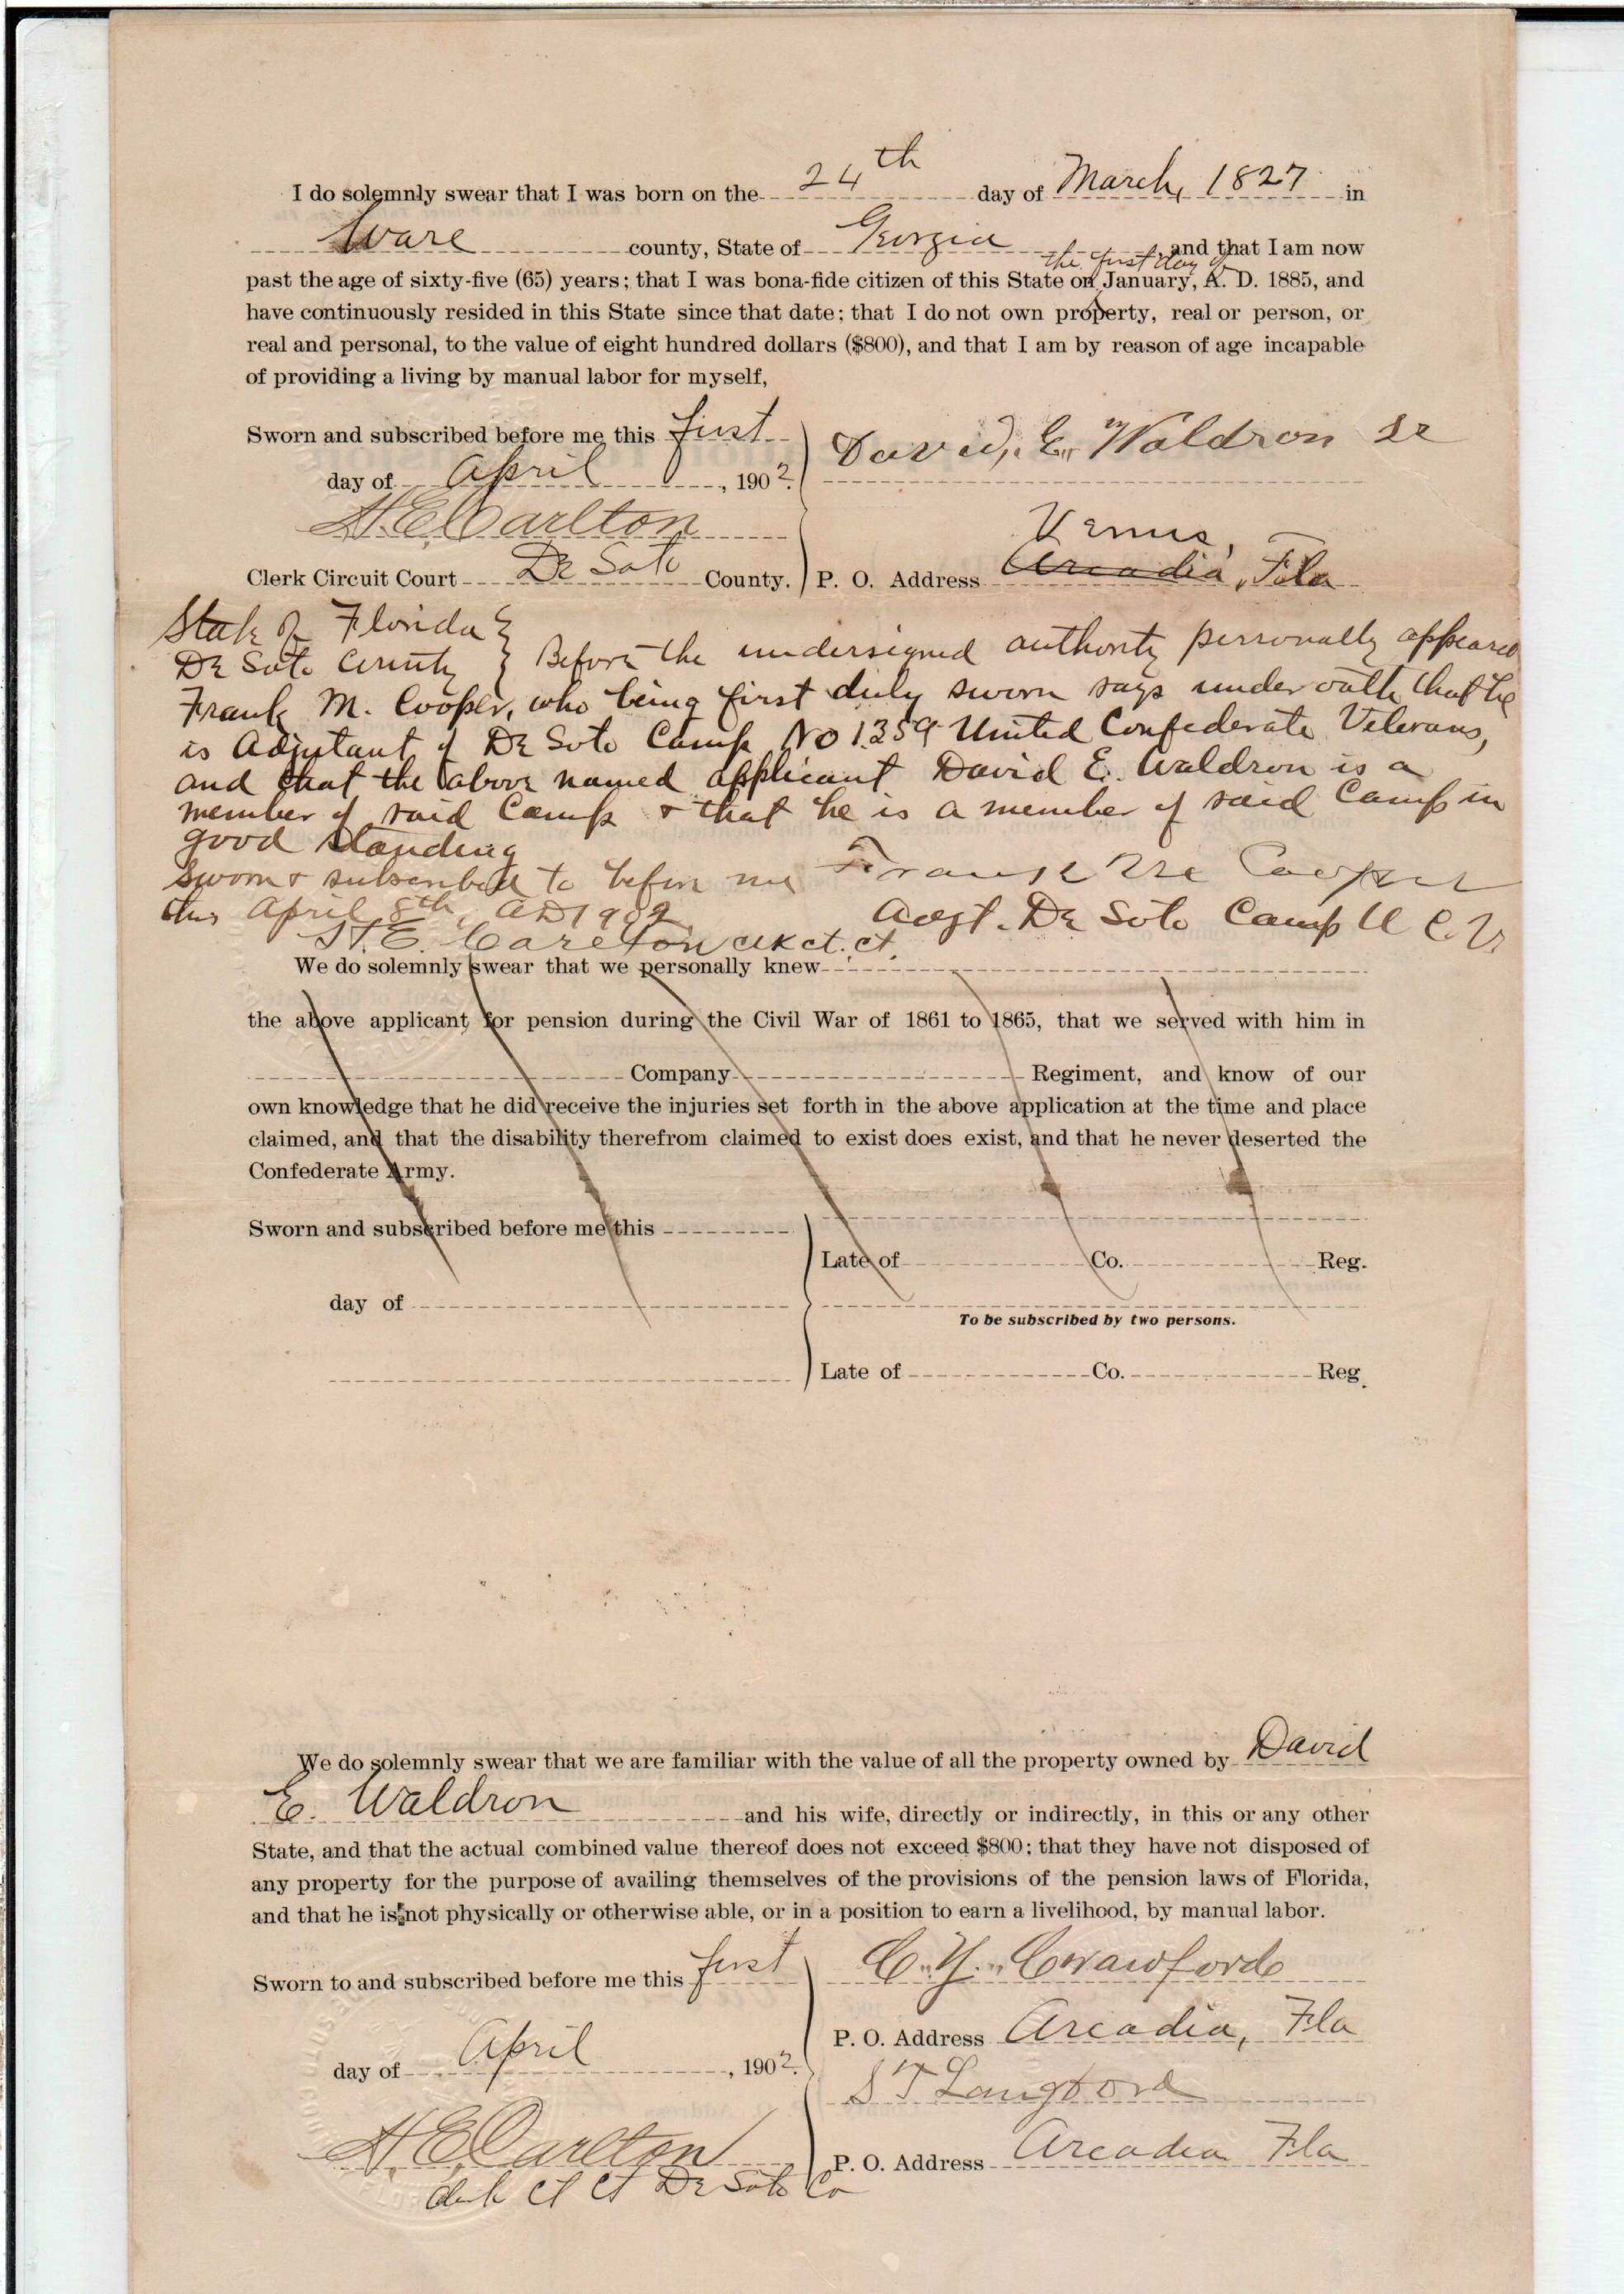 I do solemnly swear that I was born on the 24th day of March, 1827 in
Ware county, State of Georgia and that I am now
the first day of
past the age of sixty-five (65) years; that I was bona-fide citizen of this State on January, A. D. 1885, and
have continuously resided in this State since that date; that I do not own property, real or person, or
real and personal, to the value of eight hundred dollars ($800), and that I am by reason of age incapable
of providing a living by manual labor for myself,
Sworn and subscribed before me this first
David, E, Waldron Sr
day of April, 1902.
H. E. Carlton
Venus,
Clerk Circuit Court De Soto County. P. O. Address Arcadia, Fla
State of Florida
De Soto County Before the undersigned authority personally appeared
Frank M. Cooper, who being first duly sworn says under oath that he
is Adjutant of De Soto Camp No 1359 United Confederate Veterans,
and that the above named applicant David E. Waldron is a
member of said Camp & that he is a member of said Camp in
good standing
Sworn & subscribed to before me Frank M Cooper
this April 8th, AD 1902 Adjt. De Soto Camp U C V
H. E. Carlton clk ct. ct.
We do solemnly swear that we personally knew
the above applicant for pension during the Civil War of 1861 to 1865, that we served with him in
Company Regiment, and know of our
own knowledge that he did receive the injuries set forth in the above application at the time and place
claimed, and that the disability therefrom claimed to exist does exist, and that he never deserted the
Confederate Army.
Sworn and subscribed before me this
Late of Co. Reg.
day of
To be subscribed by two persons.
Late of Co. Reg.
We do solemnly swear that we are familiar with the value of all the property owned by David
E. Waldron and his wife, directly or indirectly, in this or any other
State, and that the actual combined value thereof does not exceed $800; that they have not disposed of
any property for the purpose of availing themselves of the provisions of the pension laws of Florida,
and that he is not physically or otherwise able, or in a position to earn a livelihood, by manual labor.
Sworn to and subscribed before me this first
C. Y. Crawford
P. O. Address Arcadia, Fla
day of April, 1902.
S T Langford
H. E. Carlton
P. O. Address Arcadia Fla
clerk Ct Ct De Soto Co